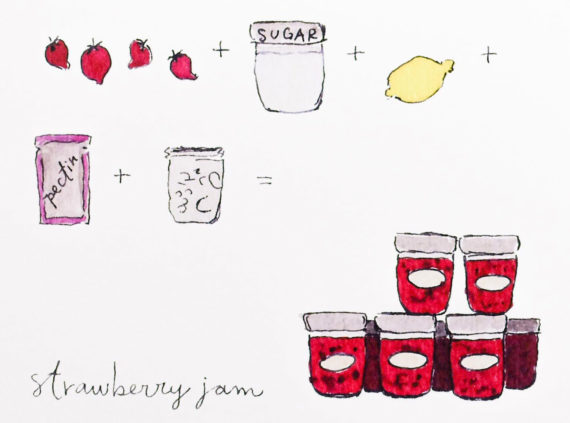 SUGAR
pectin
strawberry jam